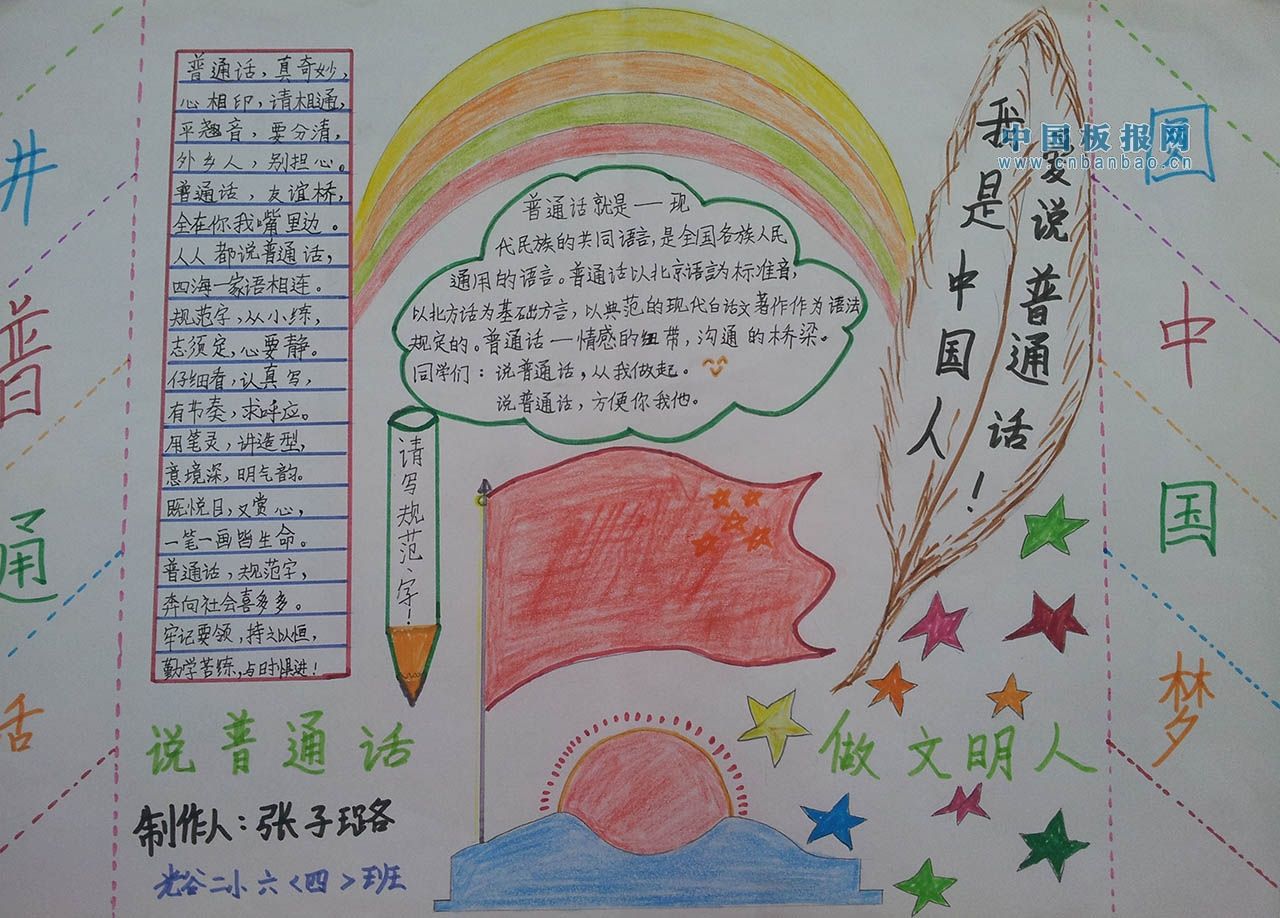 讲普通话
普通话，真奇妙，
心相印，请相通，
平翘音，要分清，
外乡人，别担心。
普通话，友谊桥，
全在你我嘴里边。
人人都说普通话，
四海一家语相连。
规范字，从小练，
志须定，心要静。
仔细看，认真写，
有节奏，求呼应。
用笔灵，讲造型，
意境深，明气韵。
既悦目，又赏心，
一笔一画皆生命。
普通话，规范字，
奔向社会喜多多。
牢记要领，持之以恒，
勤学苦练，与时俱进！
普通话就是一现
代民族的共同语言，是全国各族人民
通用的语言。普通话以北京语言为标准音，
以北方话为基础方言，以典范的现代白话文著作作为语法
规定的。普通话一情感的纽带，沟通的桥梁。
同学们：说普通话，从我做起。
说普通话，方便你我他。
请写规范字！
爱说普通话！
我是中国人
中国板报网
www.cnbanbao.cn
圆中国梦
说普通话
做文明人
制作人：张子璐
光谷二小六<四>班